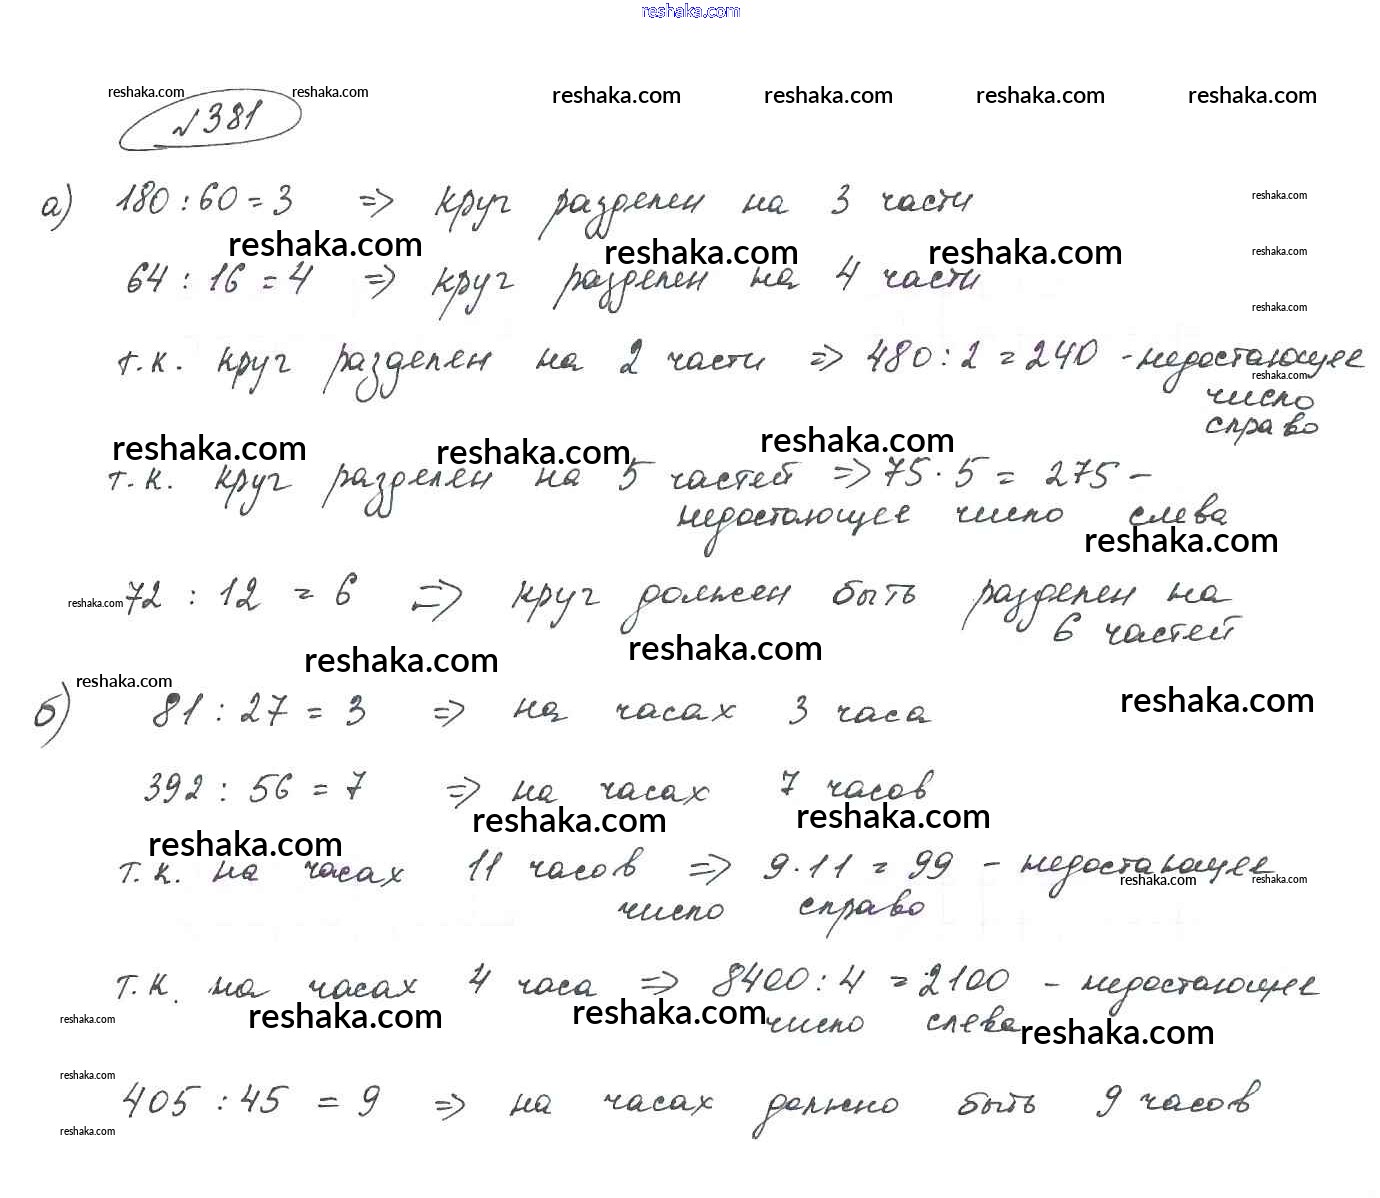 reshaka.com
reshaka.com reshaka.com reshaka.com reshaka.com reshaka.com reshaka.com
№381
а) 180 : 60 = 3 => круг разделен на 3 части
reshaka.com
reshaka.com reshaka.com reshaka.com reshaka.com
64 : 16 = 4 => круг разделен на 4 части
reshaka.com
т.к. круг разделен на 2 части => 480 : 2 = 240 - недостающее
reshaka.com
число
справо
reshaka.com reshaka.com reshaka.com
т.к. круг разделен на 5 частей => 75 · 5 = 275 -
недостающее число слева
reshaka.com
reshaka.com 72 : 12 = 6 => круг должен быть разделен на
6 частей
reshaka.com reshaka.com
reshaka.com reshaka.com
б) 81 : 27 = 3 => на часах 3 часа
392 : 56 = 7 => на часах 7 часов
reshaka.com reshaka.com reshaka.com
т.к. на часах 11 часов => 9 · 11 = 99 - недостающее
reshaka.com reshaka.com
число справо
т.к. на часах 4 часа => 8400 : 4 = 2100 - недостающее
reshaka.com reshaka.com reshaka.com reshaka.com
число слева
reshaka.com
405 : 45 = 9 => на часах должно быть 9 часов
reshaka.com